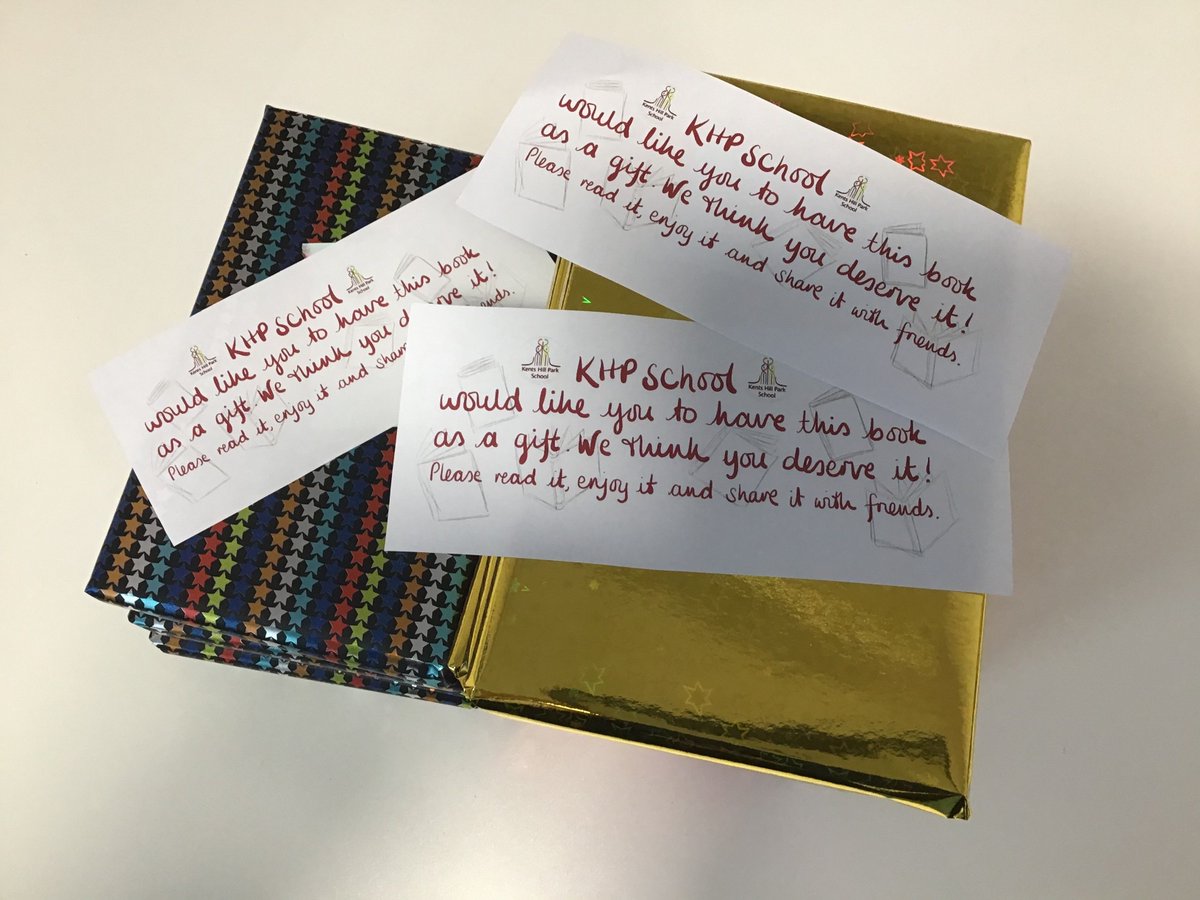 Kents Hill Park
School
KHP School
Kents Hill Park
School
would like you to have this book
as a gift. We think you deserve it!
Please read it, enjoy it and share it with friends.
Kents Hill Park
School
KHP School
Kents Hill Park
School
would like you to have this book
as a gift. We think you deserve it!
Please read it, enjoy it and shar friends.
Kents Hill Park
School
KHP School
Kents Hill Park
School
would like you to have this book
as a gift. We think you deserve it!
Please read it, enjoy it and share it with friends.